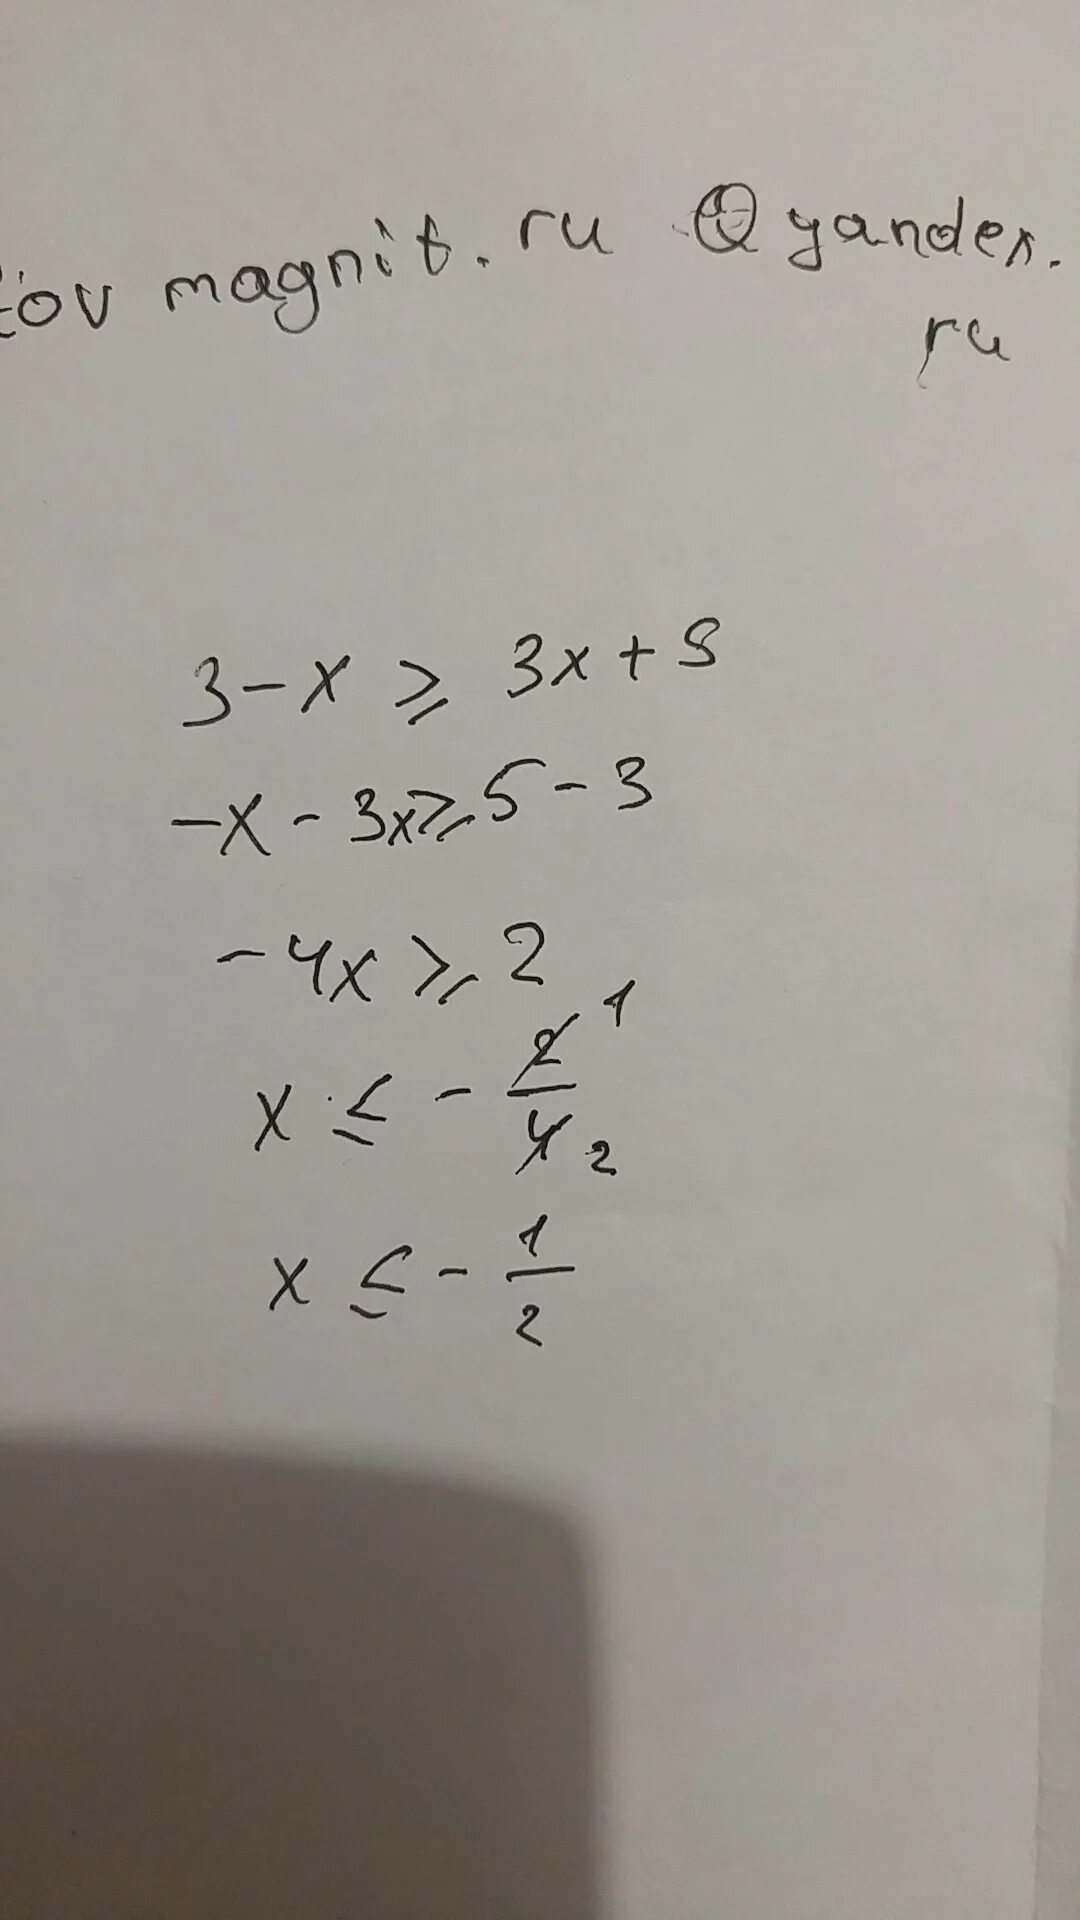 tov magnit.ru @yandex.
ru
3 - x ⩾ 3x + 5
-x - 3x ⩾ 5 - 3
-4x ⩾ 2
x ≤ - 2/4 1 2
x ≤ - 1/2